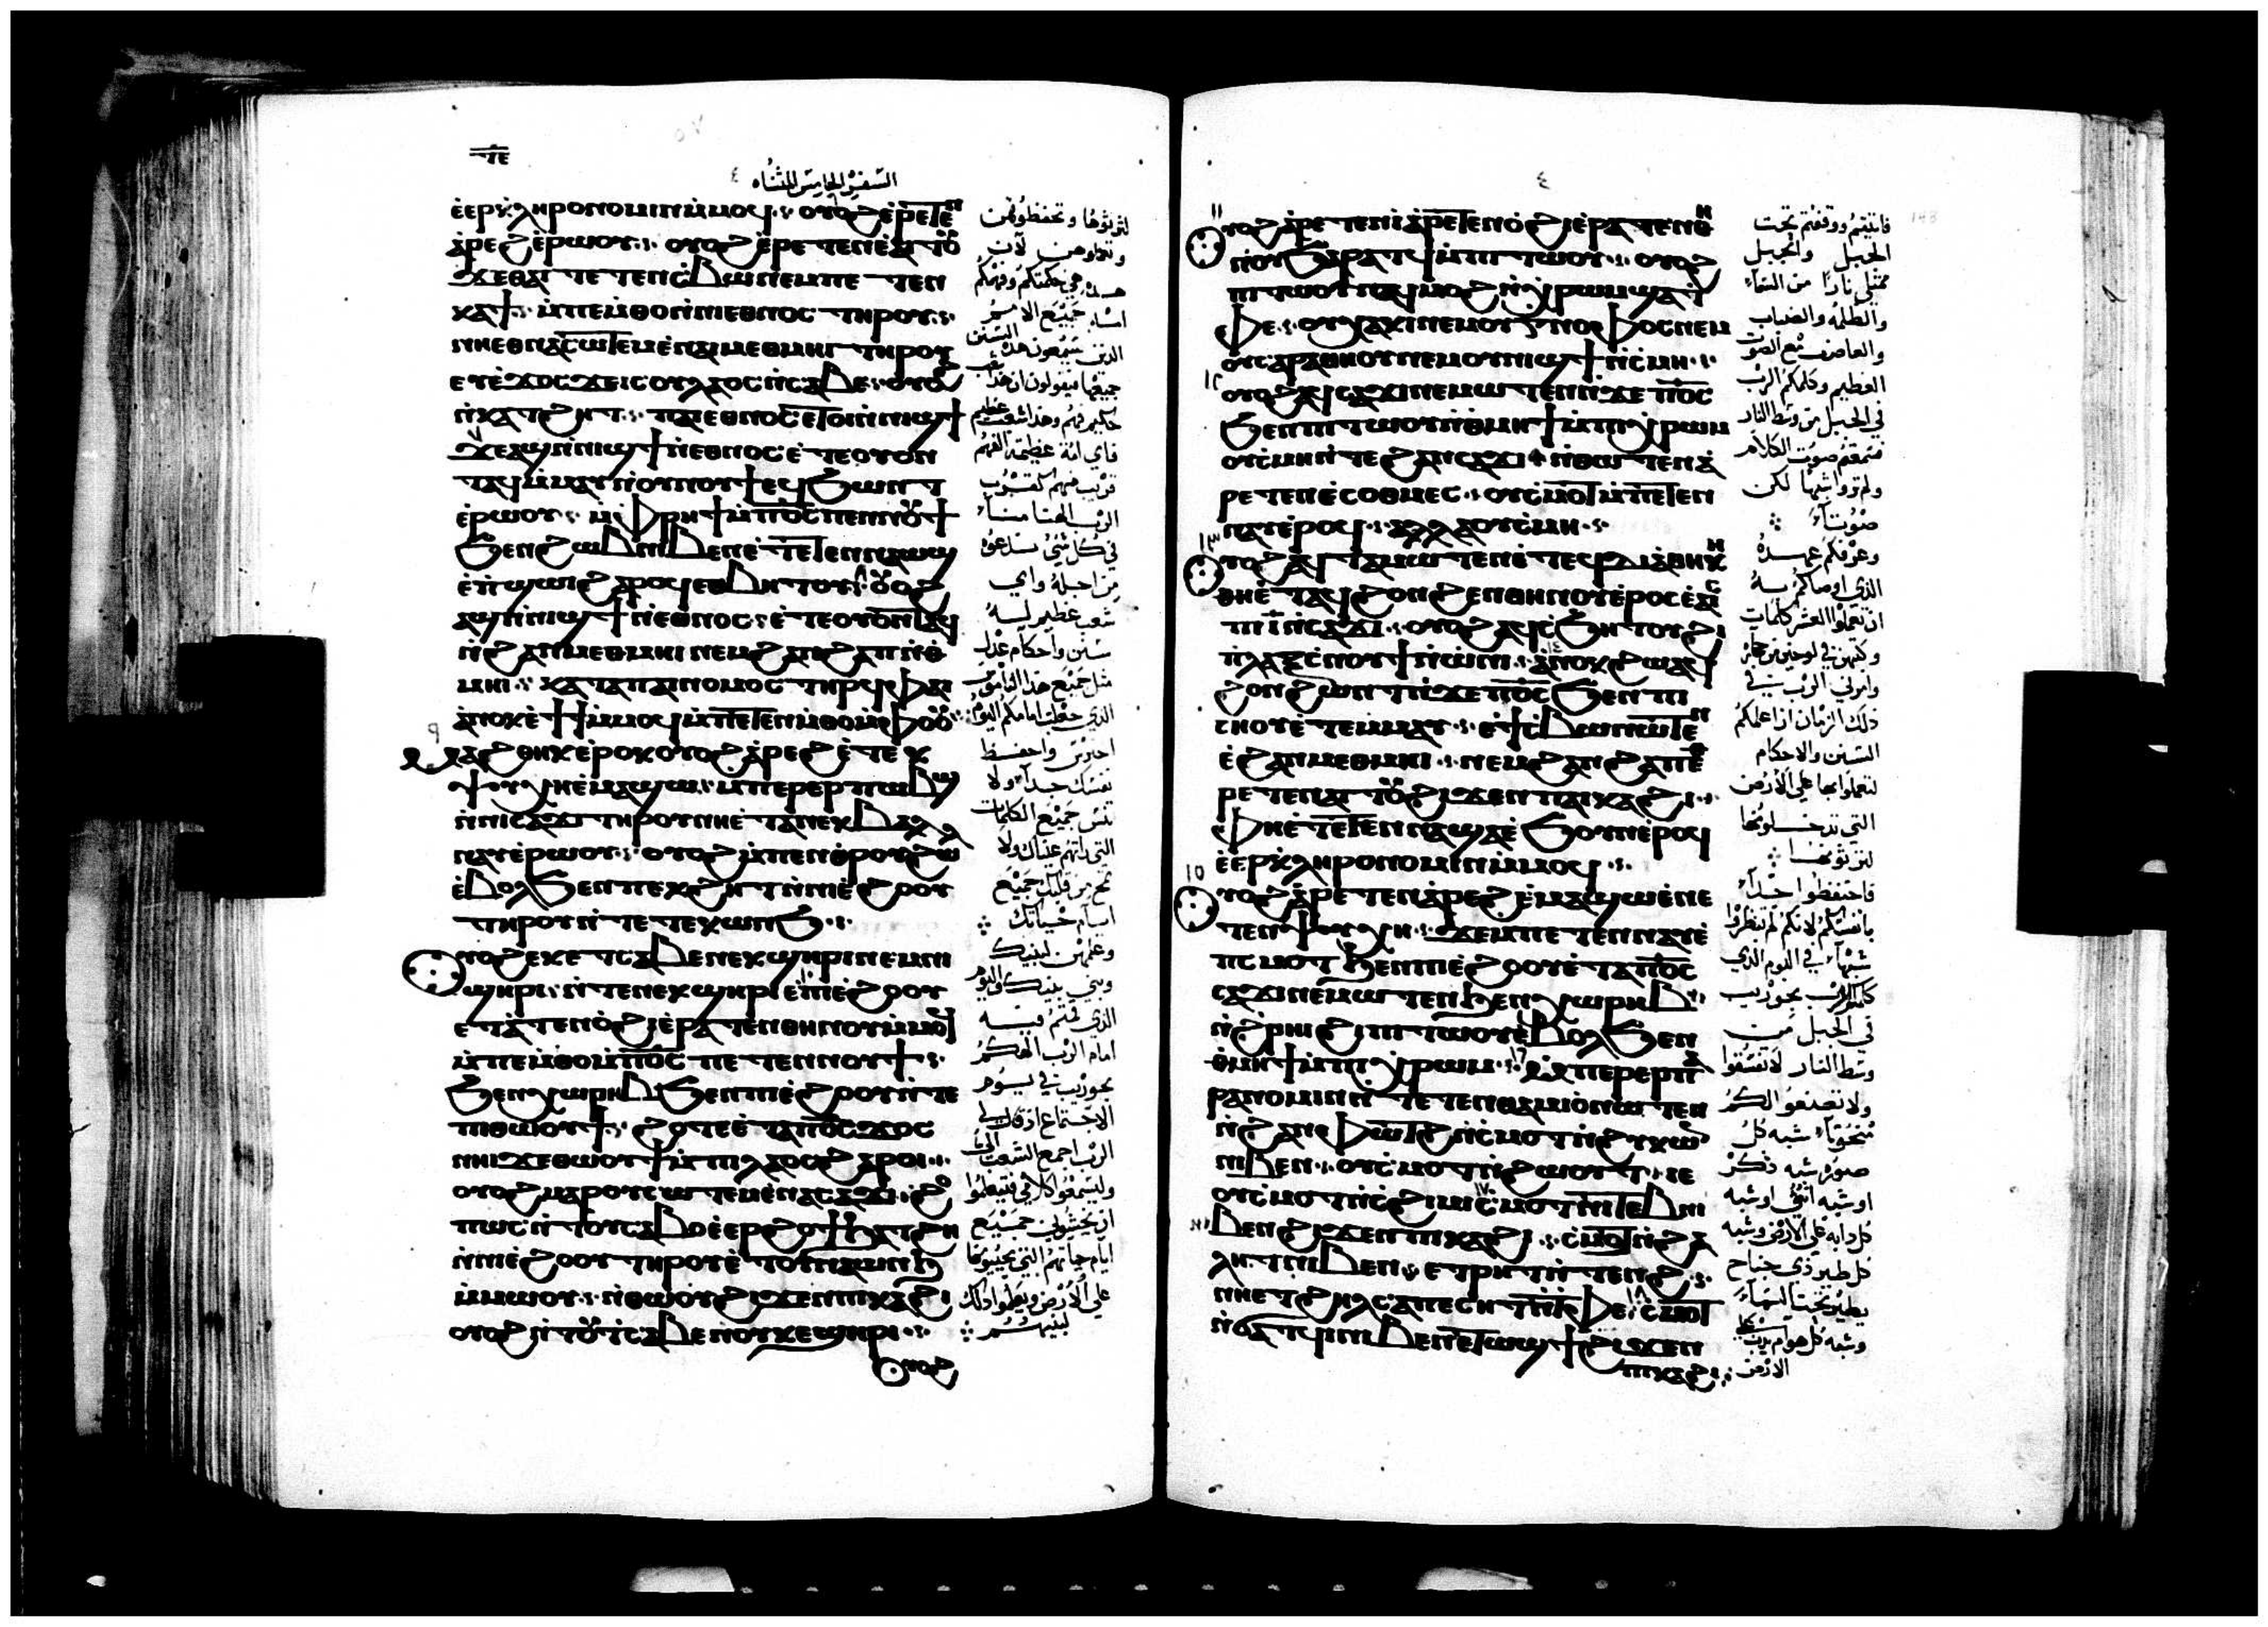 ⲧⲉ
السفر الخامس المثناه
ⲉ̀ⲉⲣⲕ̀ⲗⲏⲣⲟⲛⲟⲙⲓⲛ ⲙ̀ⲙⲟϥ ⲟⲩⲟϩ ⲉ̀ⲣⲉⲧⲉⲛ
ⲁ̀ⲣⲉϩ ⲉ̀ⲣⲱⲟⲩ ⲟⲩⲟϩ ⲉ̀ⲣⲉⲧⲉⲛⲉ̀ⲁⲓⲧⲟⲩ
ϫⲉ ⲑⲁⲓ ⲧⲉ ⲧⲉⲛⲥ̀ⲃⲱ ⲛⲉⲙ ⲡⲉⲧⲉⲛ
ⲕⲁϯ ⲙ̀ⲡⲉⲙ̀ⲑⲟ ⲛ̀ⲛⲓⲉⲑⲛⲟⲥ ⲧⲏⲣⲟⲩ
ⲛⲏⲉⲑⲛⲁⲥⲱⲧⲉⲙ ⲉ̀ⲛⲁⲓⲙⲉⲑⲙⲏⲓ ⲧⲏⲣⲟⲩ
ⲉⲩⲉ̀ϫⲟⲥ ϫⲉ ⲓⲥ ⲟⲩⲗⲁⲟⲥ ⲛ̀ⲥⲁⲃⲉ ⲟⲩⲟϩ
ⲛ̀ⲕⲁⲧϩⲏⲧ ⲡⲁⲓⲉⲑⲛⲟⲥ ⲉⲧⲟⲓ ⲛ̀ⲛⲓϣϯ
ϫⲉ ⲁϣ ⲛ̀ⲛⲓϣϯ ⲛ̀ⲉⲑⲛⲟⲥ ⲉ̀ⲧⲉ ⲟⲩⲟⲛ
ⲧⲁϥ ⲙ̀ⲙⲁⲩ ⲛ̀ⲟⲩⲛⲟⲩϯ ⲉϥϧⲱⲛⲧ
ⲉ̀ⲣⲱⲟⲩ ⲙ̀ⲫⲣⲏϯ ⲙ̀ⲡⲟ̅ⲥ̅ ⲡⲉⲛⲛⲟⲩϯ
ϧⲉⲛ ϩⲱⲃ ⲛⲓⲃⲉⲛ ⲉ̀ⲧⲉⲧⲉⲛⲛⲁⲱϣ
ⲉ̀ⲡ̀ϣⲱⲓ ϩⲁⲣⲟϥ ⲉⲑⲃⲏⲧⲟⲩ ⲟⲩⲟϩ
ⲁϣ ⲛ̀ⲛⲓϣϯ ⲛ̀ⲉⲑⲛⲟⲥ ⲉ̀ⲧⲉ ⲟⲩⲟⲛⲧⲁϥ
ⲛ̀ϩⲁⲛⲙⲉⲑⲙⲏⲓ ⲛⲉⲙ ϩⲁⲛϩⲁⲡ ⲛ̀ⲑ
ⲙⲏⲓ ⲕⲁⲧⲁ ⲡⲁⲓⲛⲟⲙⲟⲥ ⲧⲏⲣϥ ⲫⲁⲓ
ⲁ̀ⲛⲟⲕ ⲉ̀ϯϯ ⲙ̀ⲙⲟϥ ⲙ̀ⲡⲉⲧⲉⲛⲙ̀ⲑⲟ ⲙ̀ⲫⲟⲟⲩ
٩ ⲙⲁϩⲑⲏⲕ ⲉ̀ⲣⲟⲕ ⲟⲩⲟϩ ⲁ̀ⲣⲉϩ ⲉ̀ⲧⲉⲕ
ⲯⲩⲭⲏ ⲉ̀ⲙⲁϣⲱ ⲙ̀ⲡⲉⲣⲉⲣⲡⲱⲃϣ
ⲛ̀ⲛⲓⲥⲁϫⲓ ⲧⲏⲣⲟⲩ ⲛⲏⲉ̀ⲧⲁ ⲛⲉⲕⲃⲁⲗ
ⲛⲁⲩ ⲉ̀ⲣⲱⲟⲩ ⲟⲩⲟϩ ⲙ̀ⲡⲉⲛⲑⲣⲟⲩϩⲱ
ⲉ̀ⲃⲟⲗ ϧⲉⲛ ⲡⲉⲕϩⲏⲧ ⲛ̀ⲛⲓⲉ̀ϩⲟⲟⲩ
ⲧⲏⲣⲟⲩ ⲛ̀ⲧⲉ ⲡⲉⲕⲱⲛϧ
ⲟⲩⲟϩ ⲉⲕⲉ̀ⲧⲥⲁⲃⲉ ⲛⲉⲕϣⲏⲣⲓ ⲛⲉⲙ ⲛⲓ
ϣⲏⲣⲓ ⲛ̀ⲧⲉ ⲛⲉⲕϣⲏⲣⲓ ⲉ̀ⲡⲓⲉ̀ϩⲟⲟⲩ
ⲉⲧⲁⲧⲉⲛⲟ̀ϩⲓ ⲉ̀ⲣⲁⲧⲉⲛⲑⲏⲛⲟⲩ ⲙ̀ⲙⲟϥ
ⲙ̀ⲡⲉⲙ̀ⲑⲟ ⲙ̀ⲡⲟ̅ⲥ̅ ⲡⲉⲧⲉⲛⲛⲟⲩϯ
ϧⲉⲛ ⲭⲱⲣⲏⲃ ϧⲉⲛ ⲡⲓⲉ̀ϩⲟⲟⲩ ⲛ̀ⲧⲉ
ⲡⲓⲑⲱⲟⲩϯ ϩⲟⲧⲉ ⲉ̀ⲧⲁ ⲡⲟ̅ⲥ̅ ϫⲟⲥ
ⲛⲏⲓ ϫⲉ ⲑⲱⲟⲩϯ ⲙ̀ⲡⲓⲗⲁⲟⲥ ϩⲁⲣⲟⲓ
ⲟⲩⲟϩ ⲙⲁⲣⲟⲩⲥⲱⲧⲉⲙ ⲉ̀ⲛⲁⲥⲁϫⲓ ϩⲟ
ⲡⲱⲥ ⲛ̀ⲧⲟⲩⲥⲁⲃⲟ ⲉ̀ⲉⲣϩⲟϯ ϧⲁⲧϩⲏ
ⲛ̀ⲛⲓⲉ̀ϩⲟⲟⲩ ⲧⲏⲣⲟⲩ ⲉ̀ⲧⲟⲩⲛⲁⲱⲛϧ
ⲙ̀ⲙⲱⲟⲩ ⲛ̀ⲑⲱⲟⲩ ϩⲓϫⲉⲛ ⲡⲓⲕⲁϩⲓ
ⲟⲩⲟϩ ⲛ̀ⲧⲟⲩⲧⲥⲁⲃⲉ ⲛⲟⲩⲕⲉϣⲏⲣⲓ
ⲟⲩⲟϩ
لترثوها وتحفظوهن
وتعملوهن لان
هذه هي حكمتكم وفهمكم
امام جميع الامم
الذين يسمعون هذه السنن
جميعها فيقولون ان هذا شعب
حكيم فهم وهذا الشعب عظيم
فاي امة عظيمة الهم
قريب منهم كقرب
الرب الهنا منا
في كل شي ندعوه
من اجله واي
شعب عظيم له
سنن واحكام عدل
مثل جميع هذا الناموس
الذي جعلت امامكم اليوم
احترس واحفظ
نفسك جدا ولا
تنس جميع الكلمات
التي راتهم عيناك ولا
تمح من قلبك جميع
ايام حياتك
وعلمهن لبنيك
وبني بنيك واليوم
الذي قمتم فيه
امام الرب الهكم
بحوريب في يوم
الاجتماع اذ قال لي
الرب اجمع الشعب الي
وليسمعوا كلامي فيتعلموا
ان يخشوني جميع
ايام حياتهم التي يحيونها
على الارض ويعلموا ذلك
لبنيهم
٤
١١ ⲟⲩⲟϩ ⲁ̀ⲣⲉⲧⲉⲛⲓ̀ ⲁ̀ⲣⲉⲧⲉⲛⲟ̀ϩⲓ ⲉ̀ⲣⲁⲧⲉⲛⲑⲏ
ⲛⲟⲩ ϧⲁⲣⲁⲧϥ ⲙ̀ⲡⲓⲧⲱⲟⲩ ⲟⲩⲟϩ
ⲡⲓⲧⲱⲟⲩ ⲛⲁϥⲙⲟϩ ⲛ̀ⲭⲣⲱⲙ ϣⲁ ⲧ
ⲫⲉ ⲟⲩⲭⲁⲕⲓ ⲛⲉⲙ ⲟⲩⲅⲛⲟⲫⲟⲥ ⲛⲉⲙ
ⲟⲩⲥⲁⲣⲁⲑⲏⲟⲩ ⲛⲉⲙ ⲟⲩⲛⲓϣϯ ⲛ̀ⲥ̀ⲙⲏ
١٢ ⲟⲩⲟϩ ⲁϥⲥⲁϫⲓ ⲛⲉⲙⲱⲧⲉⲛ ⲛ̀ϫⲉ ⲡⲟ̅ⲥ̅
ϧⲉⲛ ⲡⲓⲧⲱⲟⲩ ⲛ̀ⲑⲙⲏϯ ⲙ̀ⲡⲓⲭⲣⲱⲙ
ⲟⲩⲥ̀ⲙⲏ ⲛ̀ⲧⲉ ϩⲁⲛⲥⲁϫⲓ ⲛ̀ⲑⲱⲧⲉⲛ ⲁ̀
ⲣⲉⲧⲉⲛⲉ̀ⲥⲟⲑⲙⲉⲥ ⲟⲩⲥ̀ⲙⲟⲧ ⲙ̀ⲡⲉⲧⲉⲛ
ⲛⲁⲩ ⲉ̀ⲣⲟϥ ⲁⲗⲗⲁ ⲟⲩⲥ̀ⲙⲏ
١٣ ⲟⲩⲟϩ ⲁϥⲧⲁⲙⲱⲧⲉⲛ ⲉ̀ⲧⲉϥⲇⲓⲁⲑⲏⲕⲏ
ⲑⲏⲉ̀ⲧⲁϥϩⲟⲛϩⲉⲛ ⲑⲏⲛⲟⲩ ⲉ̀ⲣⲟⲥ ⲉ̀ⲁⲓⲥ
ⲡⲓⲓ̅ ⲛ̀ⲥⲁϫⲓ ⲟⲩⲟϩ ⲁϥⲥ̀ϧⲏⲧⲟⲩ ϩⲓ
ⲡ̀ⲗⲁⲝ ⲥ̀ⲛⲟⲩϯ ⲛ̀ⲱⲛⲓ ⲁ̀ⲛⲟⲕ ϩⲱ ⲁϥ
ϩⲟⲛϩⲱⲛ ⲧ ⲛ̀ϫⲉ ⲡⲟ̅ⲥ̅ ϧⲉⲛ ⲡⲓ
ⲥⲏⲟⲩ ⲉ̀ⲧⲉⲙⲙⲁⲩ ⲉ̀ϯⲥ̀ⲃⲱ ⲛⲱⲧⲉⲛ
ⲉ̀ϩⲁⲛⲙⲉⲑⲙⲏⲓ ⲛⲉⲙ ϩⲁⲛϩⲁⲡ ⲉ̀
ⲣⲉⲧⲉⲛⲁⲓⲧⲟⲩ ϩⲓϫⲉⲛ ⲡⲁⲓⲕⲁϩⲓ
ⲫⲏⲉ̀ⲧⲉⲧⲉⲛⲛⲁϣⲉ ⲉ̀ϧⲟⲩⲛ ⲉ̀ⲣⲟϥ
ⲉ̀ⲉⲣⲕ̀ⲗⲏⲣⲟⲛⲟⲙⲓⲛ ⲙ̀ⲙⲟϥ
١٥ ⲟⲩⲟϩ ⲁ̀ⲣⲉⲧⲉⲛⲁ̀ⲣⲉϩ ⲉ̀ⲙⲁϣⲱ ⲉ̀ⲛⲉ
ⲧⲉⲛⲯⲩⲭⲏ ϫⲉ ⲙ̀ⲡⲉⲧⲉⲛⲛⲁⲩ ⲉ̀
ⲡⲥⲙⲟⲧ ϧⲉⲛ ⲡⲓⲉ̀ϩⲟⲟⲩ ⲉ̀ⲧⲁ ⲡⲟ̅ⲥ̅
ⲥⲁϫⲓ ⲛⲉⲙⲱⲧⲉⲛ ϧⲉⲛ ⲭⲱⲣⲏⲃ
ⲛ̀ϩ̀ⲣⲏⲓ ϩⲓ ⲡⲓⲧⲱⲟⲩ ⲉ̀ⲃⲟⲗ ϧⲉⲛ
ⲑⲙⲏϯ ⲙ̀ⲡⲓⲭⲣⲱⲙ ١٦ ⲙ̀ⲡⲉⲣⲉⲣⲡⲁ
ⲣⲁⲛⲟⲙⲓⲛ ⲛ̀ⲧⲉⲧⲉⲛⲑⲁⲙⲓⲟ̀ ⲛⲱⲧⲉⲛ
ⲛ̀ϩⲁⲛⲫⲱⲧϩ ⲛ̀ⲥ̀ⲙⲟⲧ ⲛ̀ϩⲩⲕⲱⲛ
ⲛⲓⲃⲉⲛ ⲟⲩⲥ̀ⲙⲟⲧ ⲛ̀ϩⲱⲟⲩⲧ ⲓⲉ
ⲟⲩⲥ̀ⲙⲟⲧ ⲛ̀ⲥ̀ϩⲓⲙⲓ ١٧ ⲥ̀ⲙⲟⲧ ⲛ̀ⲧⲉⲃⲛⲓ
ⲛⲓⲃⲉⲛ ϩⲓϫⲉⲛ ⲡⲓⲕⲁϩⲓ ⲥ̀ⲙⲟⲧ ⲛ̀ϩⲁ
ⲗⲏⲧ ⲛⲓⲃⲉⲛ ⲉⲧⲣⲏⲧ ⲛ̀ⲧⲉⲛϩ
ⲛⲏⲉⲧϩⲏⲗ ⲥⲁⲡⲉⲥⲏⲧ ⲛ̀ⲧⲫⲉ ١٨ ⲥ̀ⲙⲟⲧ
ⲛ̀ϭⲁⲧϥⲓ ⲛⲓⲃⲉⲛ ⲉⲧⲱϣϯ ϩⲓϫⲉⲛ
ⲡⲓⲕⲁϩⲓ
فاتيتم ووقفتم تحت
الجبل والجبل
ممتلي نارا من السماء
والظلمة والضباب
والعاصف مع الصوت
العظيم وكلمكم الرب
في الجبل من وسط النار
فسمعتم صوت الكلام
ولم تروا شبها لكن
صوتا
وعرفكم عهده
الذي اوصاكم به
ان تعملوا العشر كلمات
وكتبهن في لوحين من حجر
وامرني الرب في
ذلك الزمان ان اعلمكم
السنن والاحكام
لتعملوا بها على الارض
التي تدخلونها
لترثوها
فاحتفظوا جدا
بانفسكم لانكم لم تنظروا
شبها في اليوم الذي
كلمكم الرب بحوريب
في الجبل من
وسط النار لا تفسقوا
ولا تصنعوا لكم
منحوتا شبه كل
صورة شبه ذكر
او شبه انثى او شبه
كل دابة على الارض وشبه
كل طير ذي جناح
يطير تحت السماء
وشبه كل هوام يدب على
الارض